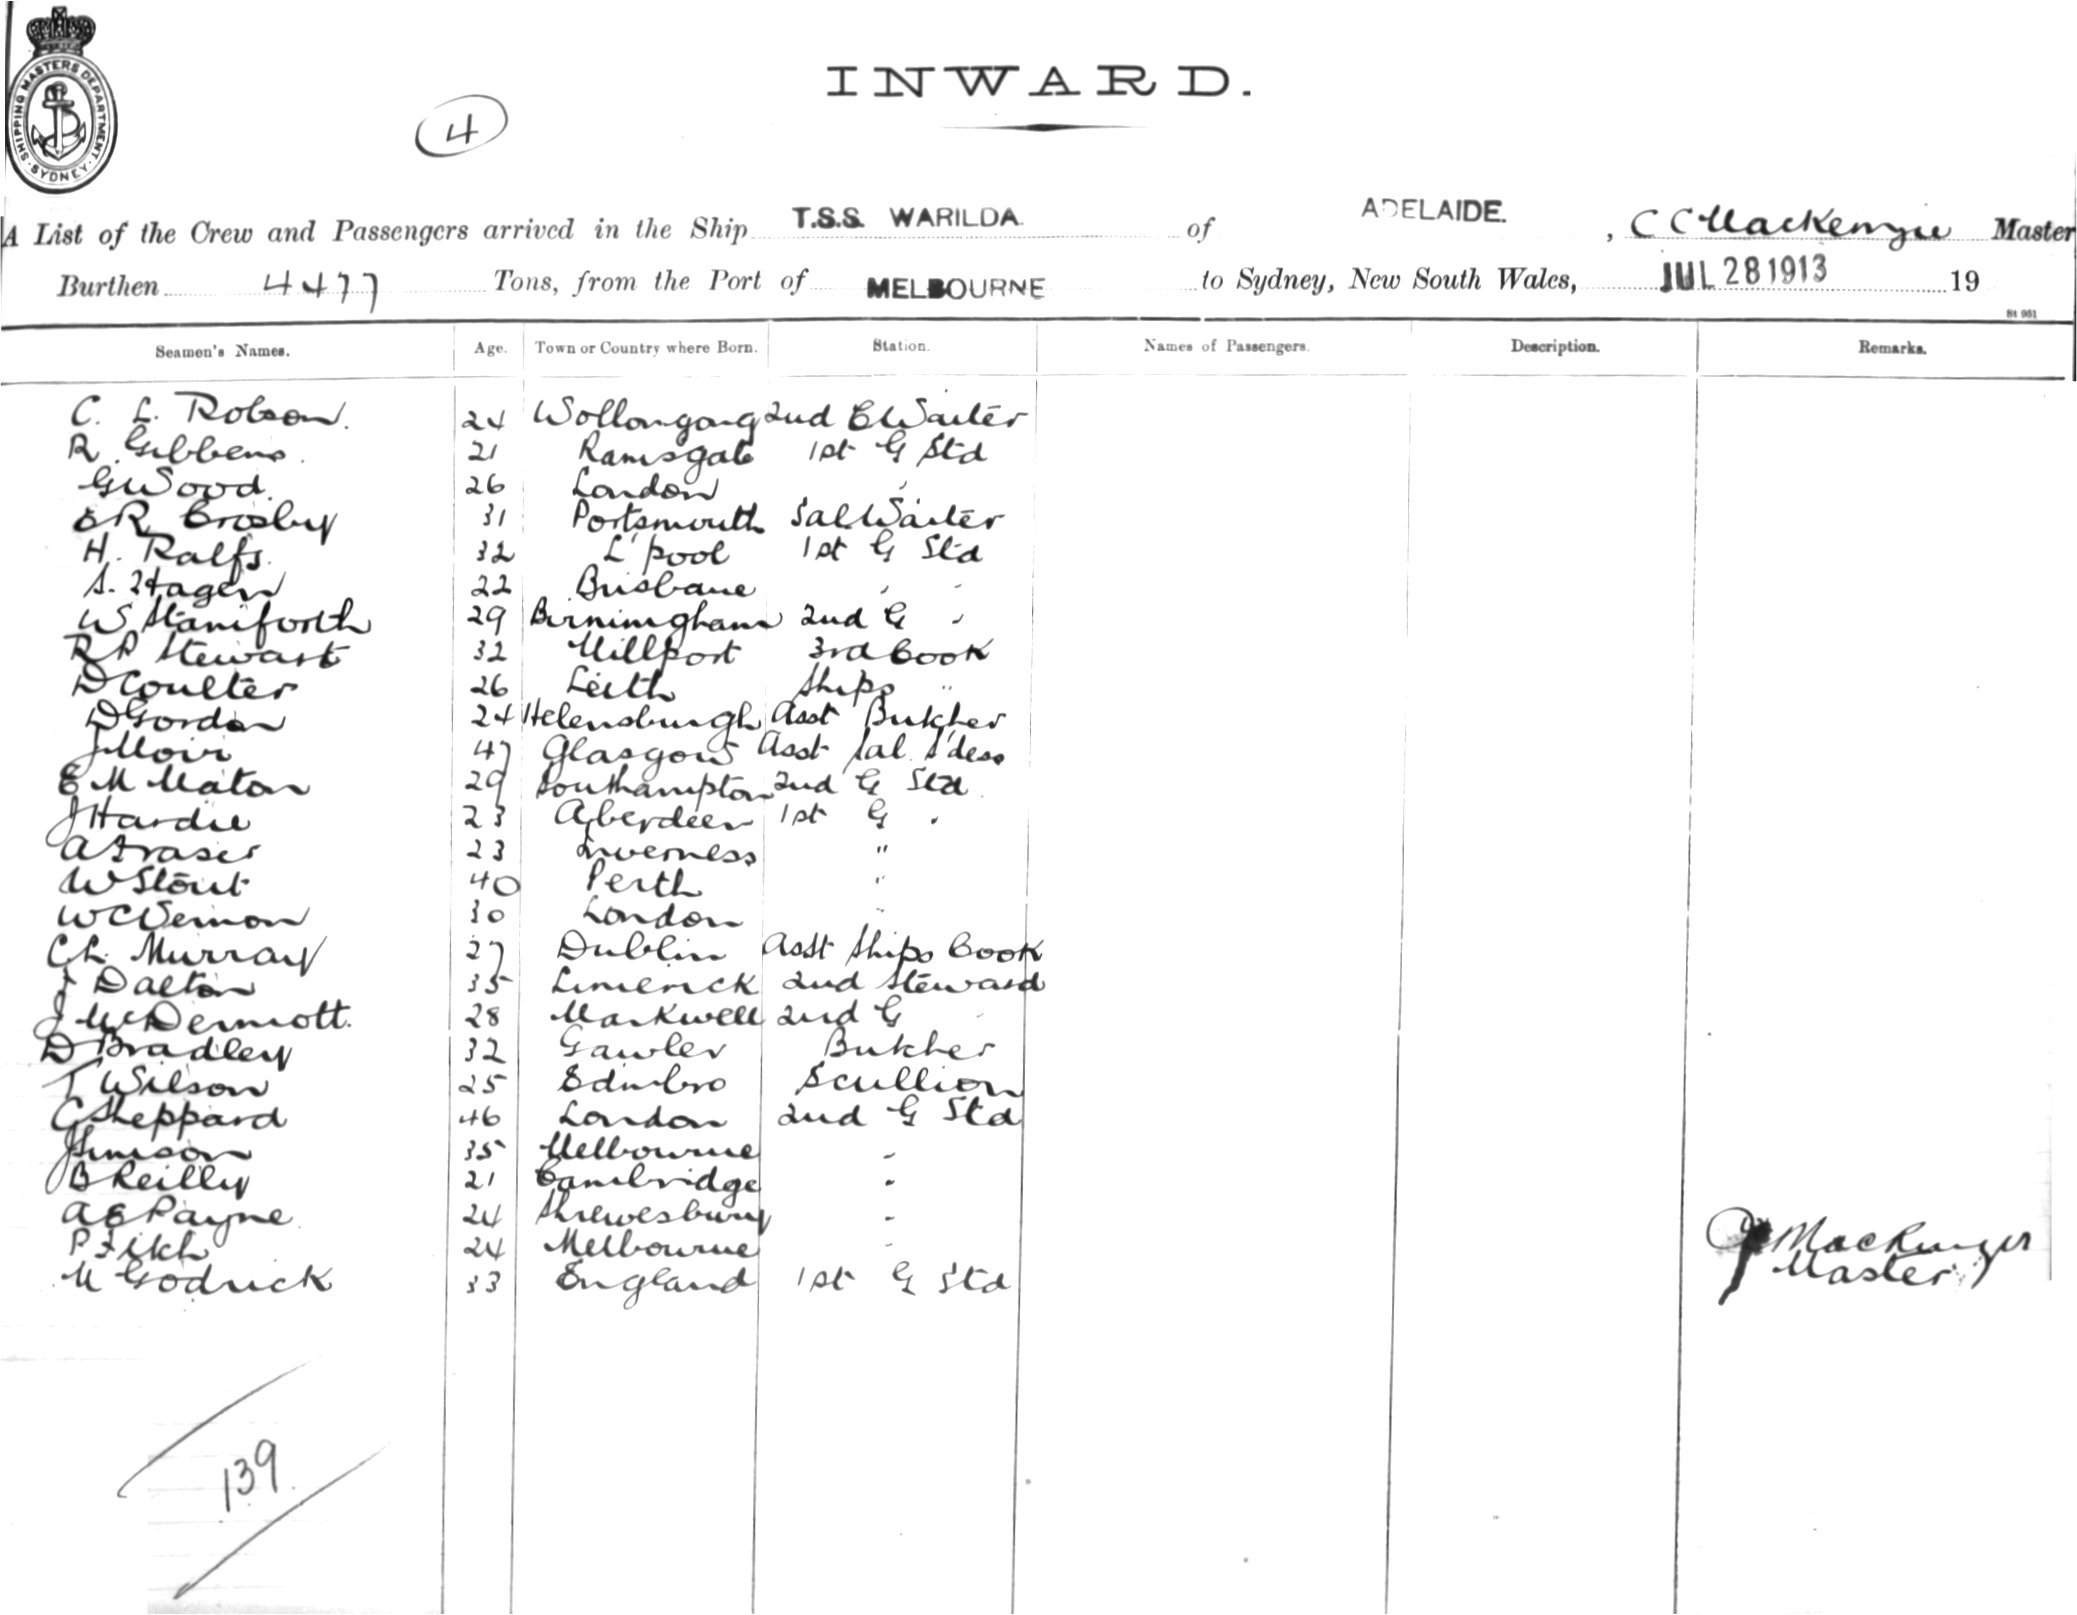 SHIPPING MASTERS DEPARTMENT. SYDNEY
4
INWARD.
A List of the Crew and Passengers arrived in the Ship T.S.S. WARILDA. of ADELAIDE. , C C MacKenzie Master
Burthen 4477 Tons, from the Port of MELBOURNE to Sydney, New South Wales, JUL 28 1913 19
St 951
Seamen's Names. Age. Town or Country where Born. Station. Names of Passengers. Description. Remarks.
C. L. Robson. 24 Wollongong 2nd C Waiter
R. Gibbens. 21 Ramsgate 1st G Std
G Wood. 26 London "
E R Crosby 31 Portsmouth Sal Waiter
H. Ralfs. 32 L'pool 1st G Std
A. Hagen 22 Brisbane " "
W Staniforth 29 Birmingham 2nd G "
R P Stewart 32 Millport 3rd Cook
D Coulter 26 Leith Ships "
D Gordon 24 Helensburgh Asst Butcher
J Moir 47 Glasgow Asst Sal. S'dess
E M Maton 29 Southampton 2nd G Std
J Hardie 23 Aberdeen 1st G "
A Fraser 23 Inverness "
W Stout 40 Perth "
W C Vernon 30 London "
C L. Murray 27 Dublin Asst Ships Cook
J Dalton 35 Limerick 2nd Steward
J McDermott. 28 Markwell 2nd G "
D Bradley 32 Gawler Butcher
T Wilson 25 Edinbro Scullion
C Sheppard 46 London 2nd G Std
J Simson 35 Melbourne "
B Reilly 21 Cambridge "
A E Payne 24 Shrewesbury "
P 24 Melbourne "
M Godrick 33 England 1st G Std
MacKenzie
Master
139